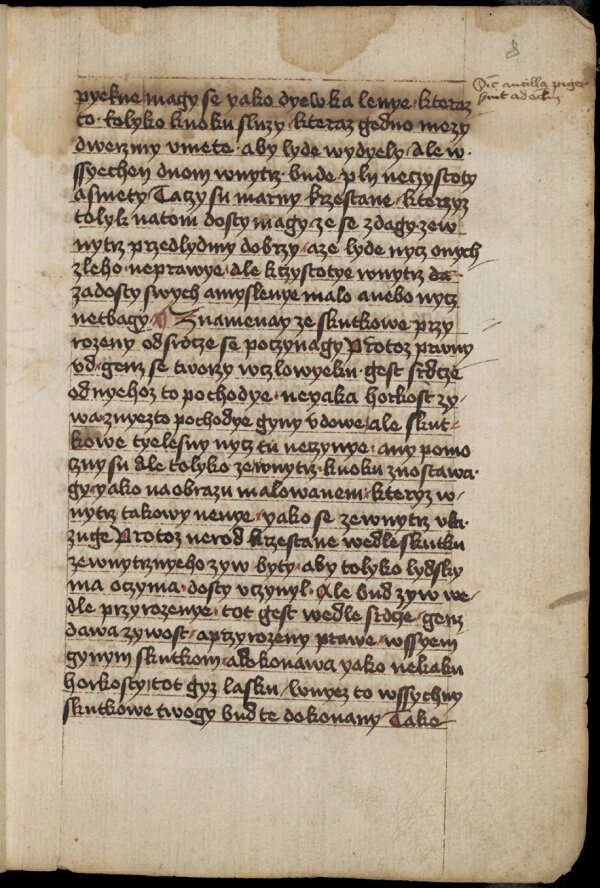 8
Sic ancilla pigra
pyekne magy se yako dyewka lenye kteraz
to tolyko kuoku sluzy kteraz gedno mezy
dwerzmy vmete aby lyde wydyely Ale w
ssyechen duom wnytrz bude pln neczystoty
a smety Taczy su marny krzestane kterzyz
tolyk na tom dosty magy ze se zdagy zew
nytrz przed lydmy dobrzy a ze lyde nycz o nych
zleho neprawye Ale k czystotye wnytrz da
zadosty swych a myslenye malo anebo nycz
netbagy Znamenay ze skutkowe przy
rozeny od srdcze se poczynagy Protoz prwny
vd genz se tworzy w czlowyeku gest srdcze
od nyehoz to pochodye neyaka horkost zy
wa z nyezto pochodye gyny vdowe ale skut
kowe tyelesny nycz tu neczynye any pomo
czny su Ale tolyko zewnytrz kuoku znostawa
gy yako na obrazu malowanem kteryz w
nytrz takowy nenye yako se zewnytrz vka
zuge Protoz nerod krzestane wedle skutku
zewnytrznyeho zyw byty aby tolyko lydsky
ma oczyma dosty vczynyl Ale bud zyw we
dle przyrozenye tot gest wedle srdcze genz
dawa zywost a przyrozeny prawe wssyem
gynym skutkom a dokonawa yako nekaku
horkosty tot gyz lasku w nyez to wssychny
skutkowe twogy bud te dokonany Tako